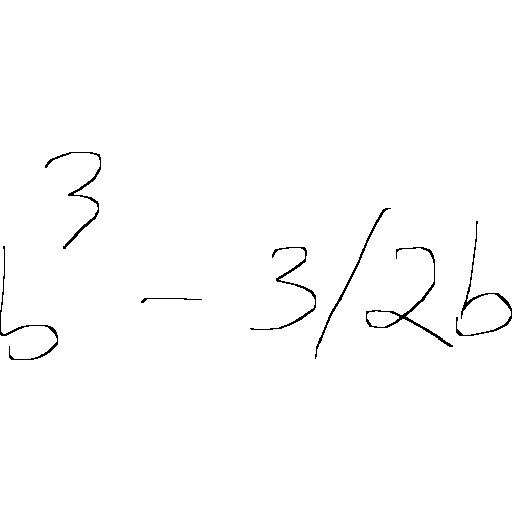 b³ - 3/2b